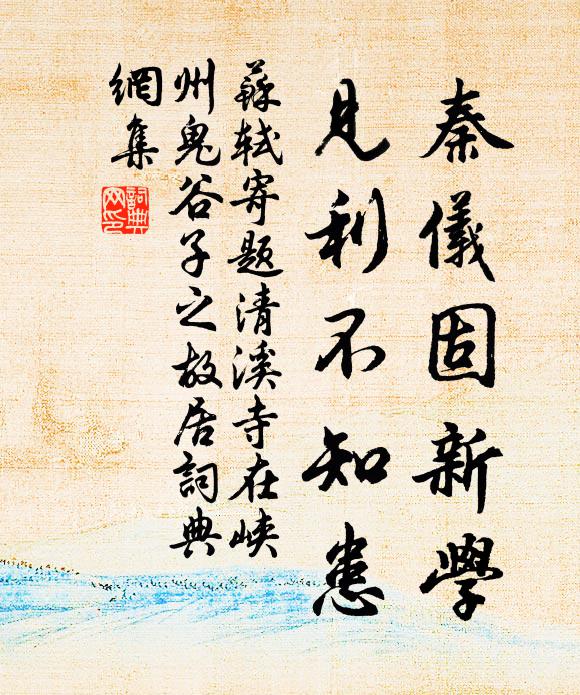 秦儀固新學
見利不知患
蘇軾寄題清溪寺在峽
州鬼谷子之故居詞典
網集
詞典
网印